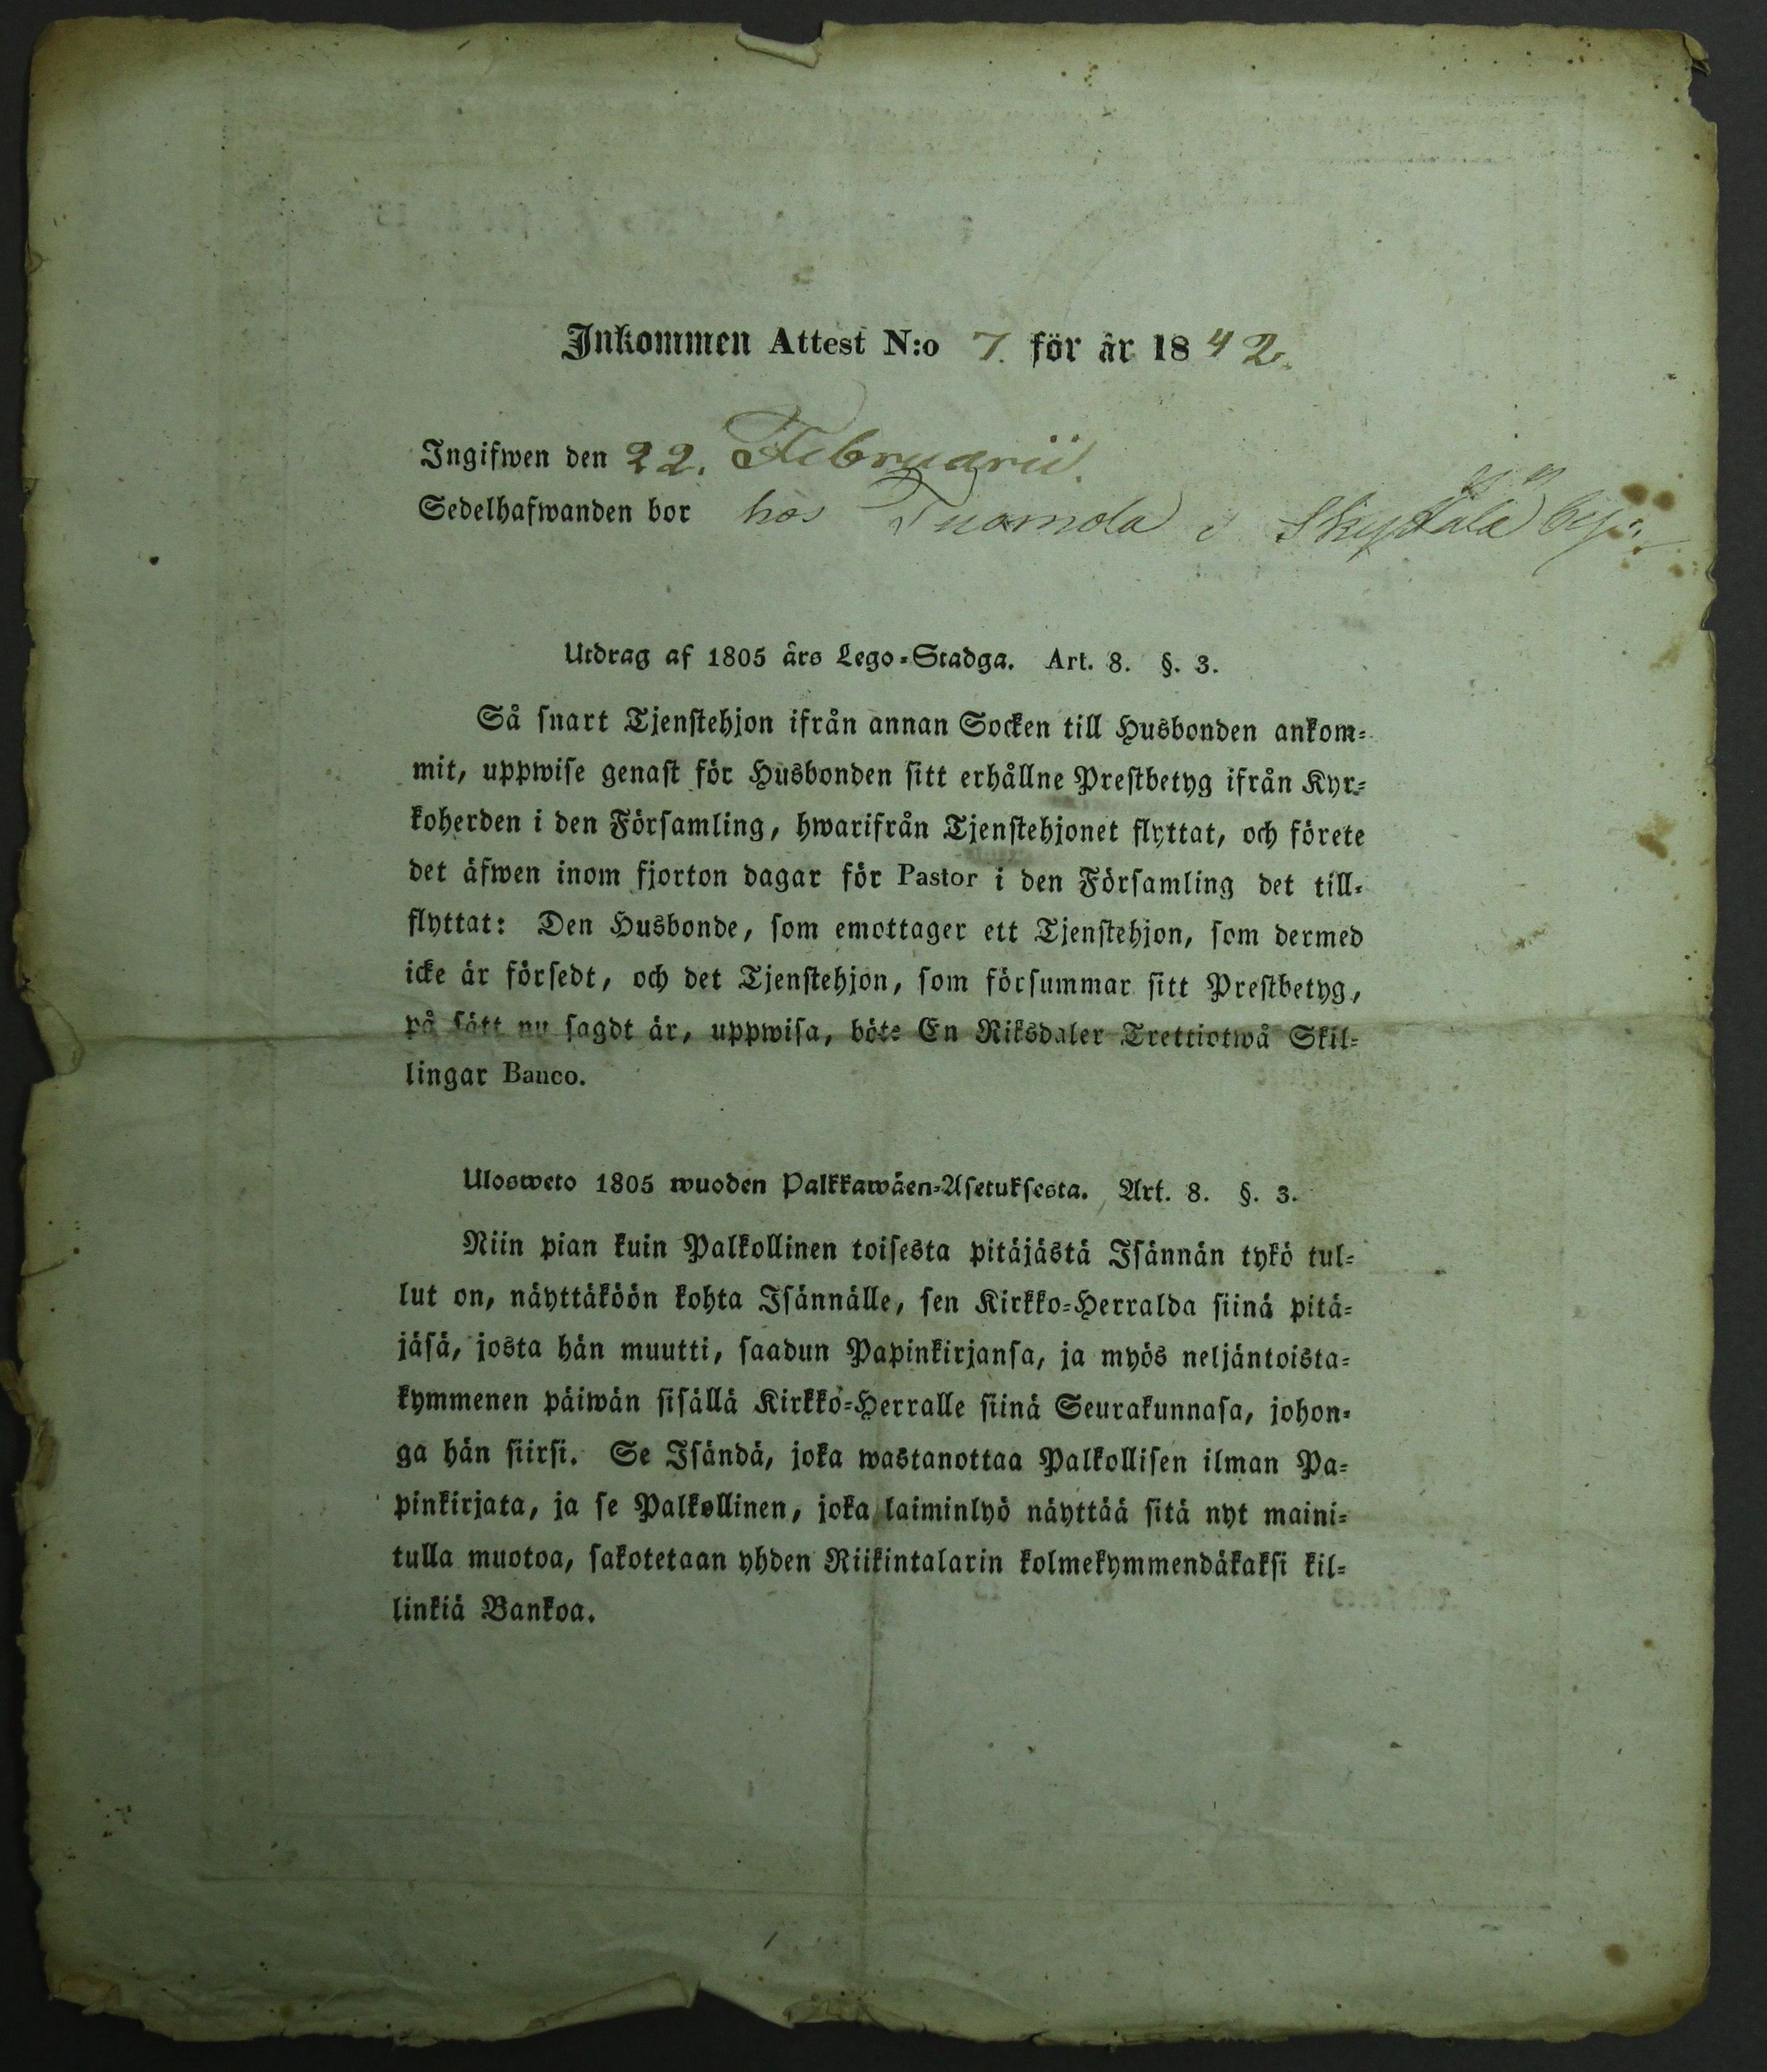 Inkommen Attest N:o 7. för år 1842.
Ingifwen den 22. Februarii.
Sedelhafwanden bor hos Tuomola i Skyttälä by.
Utdrag af 1805 års Lego-Stadga. Art. 8. §. 3.
Så snart Tjenstehjon ifrån annan Socken till Husbonden ankom-
mit, uppwise genast för Husbonden sitt erhållne Prestbetyg ifrån Kyr-
koherden i den Församling, hwarifrån Tjenstehjonet flyttat, och förete
det äfwen inom fjorton dagar för Pastor i den Församling det till-
flyttat: Den Husbonde, som emottager ett Tjenstehjon, som dermed
icke är försedt, och det Tjenstehjon, som försummar sitt Prestbetyg,
på sätt nu sagdt är, uppwisa, böte En Riksdaler Trettiotwå Skil-
lingar Banco.
Ulosweto 1805 wuoden Palkkawäen-Asetuksesta. Art. 8. §. 3.
Niin pian kuin Palkollinen toisesta pitäjästä Isännän tykö tul-
lut on, näyttäköön kohta Isännälle, sen Kirkko-Herralda siinä pitä-
jäsä, josta hän muutti, saadun Papinkirjansa, ja myös neljäntoista-
kymmenen päiwän sisällä Kirkko-Herralle siinä Seurakunnasa, johon-
ga hän siirsi. Se Isändä, joka wastanottaa Palkollisen ilman Pa-
pinkirjata, ja se Palkollinen, joka laiminlyö näyttää sitä nyt maini-
tulla muotoa, sakotetaan yhden Riikintalarin kolmekymmendäkaksi kil-
linkiä Bankoa.